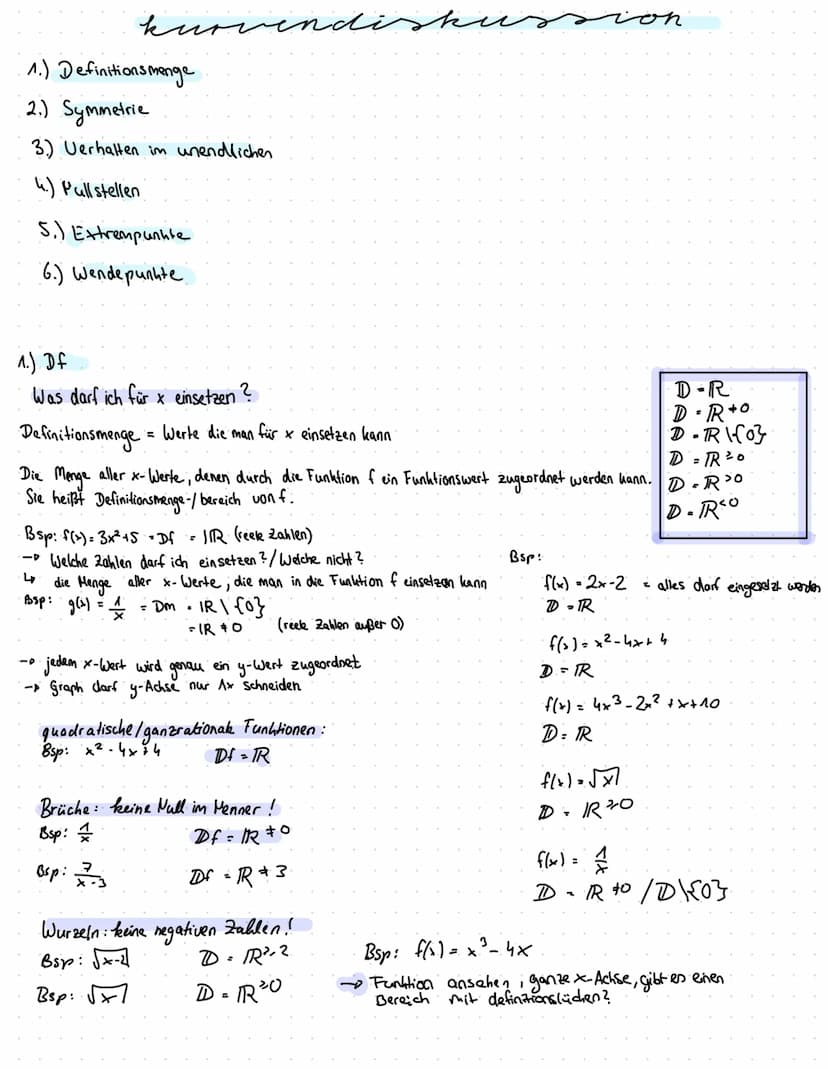 kurvendiskussion
1.) Definitionsmenge
2.) Symmetrie
3.) Verhalten im unendlichen
4.) Nullstellen
5.) Extrempunkte
6.) Wendepunkte
1.) Df
Was darf ich für x einsetzen?
Definitionsmenge = Werte die man für x einsetzen kann
Die Menge aller x-Werte, denen durch die Funktion f ein Funktionswert zugeordnet werden kann.
Sie heißt Definitionsmenge-/bereich von f.
𝔻 = ℝ
𝔻 = ℝ ≠0
𝔻 = ℝ\{0}
𝔻 = ℝ ≥0
𝔻 = ℝ >0
𝔻 = ℝ <0
Bsp: f(x) = 3x²+5 = Df = ℝ (reele Zahlen)
→ Welche Zahlen darf ich einsetzen?/Welche nicht?
↳ die Menge aller x-Werte, die man in die Funktion f einsetzen kann
Bsp: g(x) = 1/x = Dm = ℝ\{0}
= ℝ ≠0 (reele Zahlen außer 0)
→ jedem x-Wert wird genau ein y-Wert zugeordnet
→ Graph darf y-Achse nur 1x schneiden
quadratische/ganzrationale Funktionen:
Bsp: x²-4x+4 Df = ℝ
Brüche: keine Null im Nenner!
Bsp: 1/x Df = ℝ ≠0
Bsp: 7/x-3 Df = ℝ ≠3
Wurzeln: keine negativen Zahlen!
Bsp: √x-2 𝔻 = ℝ ≥2
Bsp: √x 𝔻 = ℝ ≥0
Bsp:
f(x) = 2x-2 = alles darf eingesetzt werden
𝔻 = ℝ
f(x) = x²-4x+4
𝔻 = ℝ
f(x) = 4x³-2x²+x+10
𝔻 = ℝ
f(x) = √x
𝔻 = ℝ ≥0
f(x) = 1/x
𝔻 = ℝ ≠0 /𝔻\{0}
Bsp: f(x) = x³-4x
→ Funktion ansehen, ganze x-Achse, gibt es einen
Bereich mit definitionslücken?